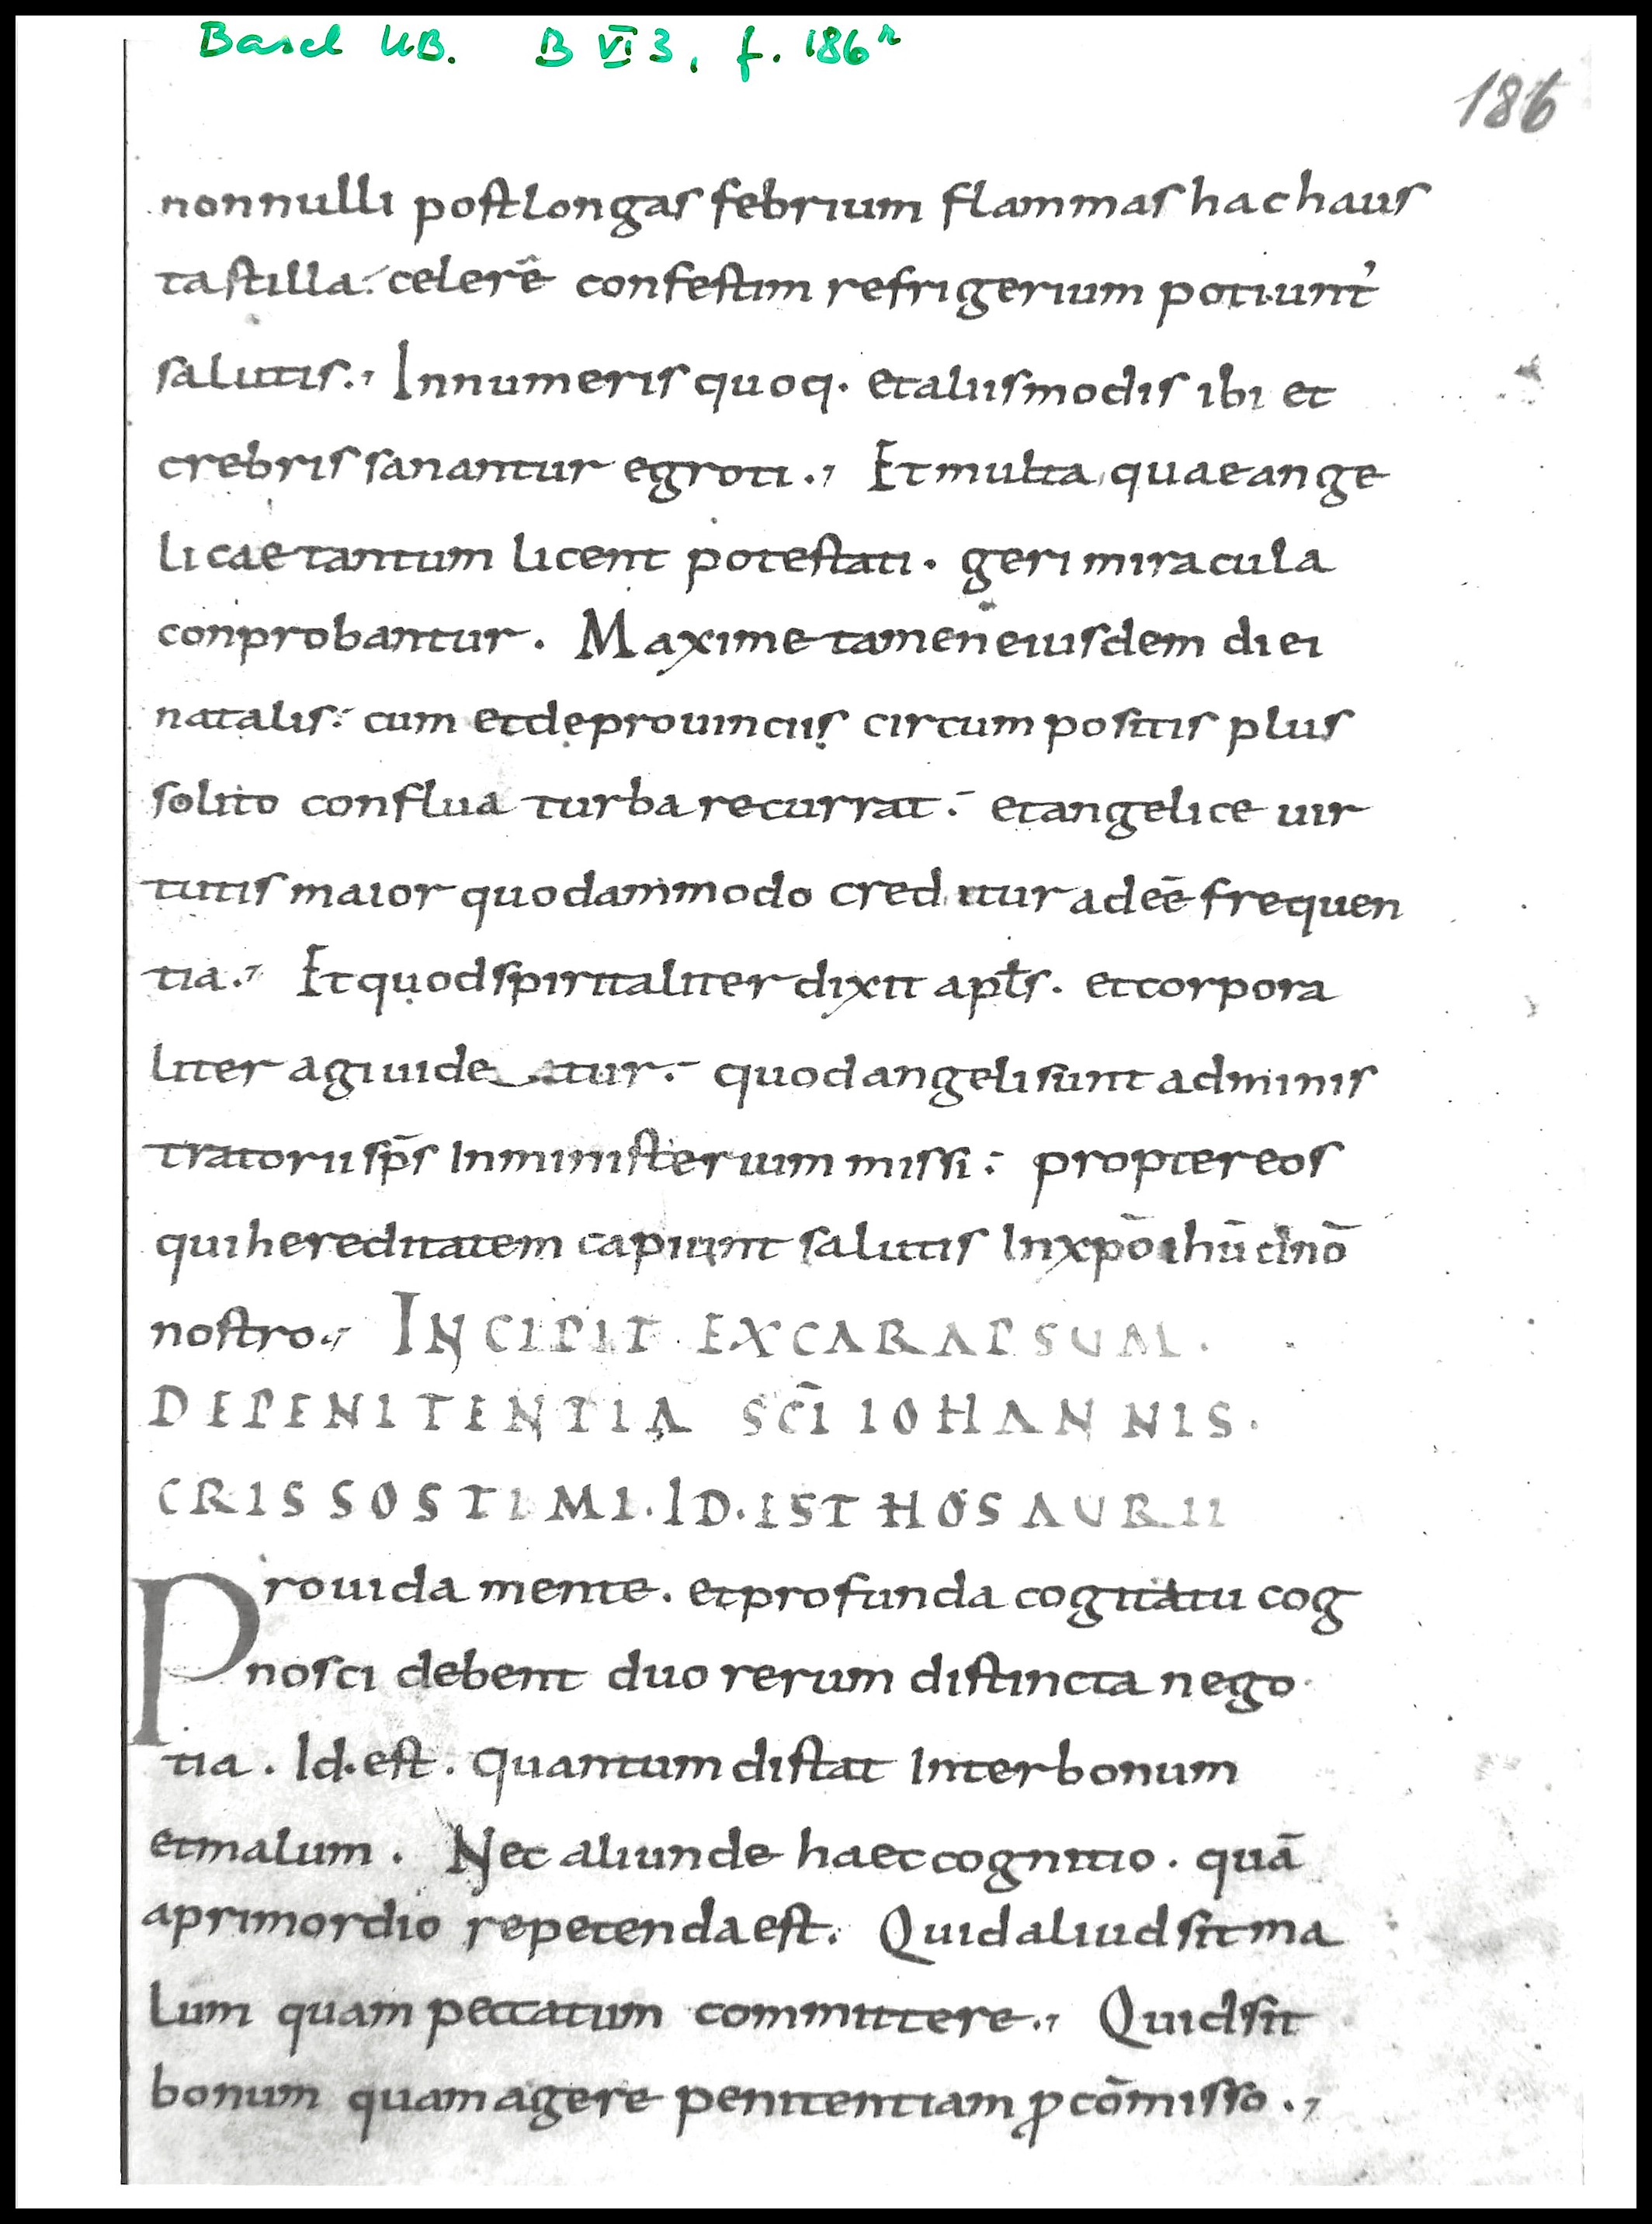 Basel UB. B VI 3, f. 186r
186
nonnulli post longas febrium flammas hac haus
ta stilla celerē confestim refrigerium potiunt᾽
salutis., Innumeris quoq. et aliis modis ibi et
crebris sanantur egroti., Et multa quae ange
licae tantum licent potestati. geri miracula
conprobantur. Maxime tamen eiusdem diei
natalis. cum et de prouinciis circum positis plus
solito conflua turba recurrat. et angelice uir
tutis maior quodammodo creditur adeē frequen
tia., Et quod spiritaliter dixit apl̄s. et corpora
liter agi uide atur. quod angeli sunt adminis
tratorii sp̄s In ministerium missi: propter eos
qui hereditatem capiunt salutis In xp̄o ihū dnō
nostro., INCIPIT EXCARAPSUM.
DEPENITENTIA SC̄I IOHANNIS.
CRISSOSTIMI. ID. IST HOSAURII
Prouida mente. et profunda cogitatu cog
nosci debent duo rerum distincta nego
tia. Id. est. quantum distat Inter bonum
et malum. Nec aliunde haec cognitio. quā
a primordio repetenda est. Quid aliud sit ma
lum quam peccatum committere., Quid sit
bonum quam agere penitentiam ꝓ cōmisso.,